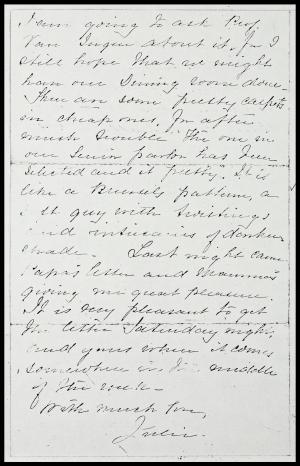 I am going to ask Prof.
Van Ingen about it, for I
still hope that we might
have our dining room done.
There are some pretty carpets
in cheap ones, for after
much trouble the one in
our Senior parlor has been
selected and it pretty. It is
like a Brussels pattern, a
gray with twistings
and intricacies of darker
shade. Last night came
Papa's letter and Mamma's
giving me great pleasure.
It is very pleasant to get
the letter Saturday night,
and yours when it comes
somewhere in the middle
of the week.
With much love,
Julia.